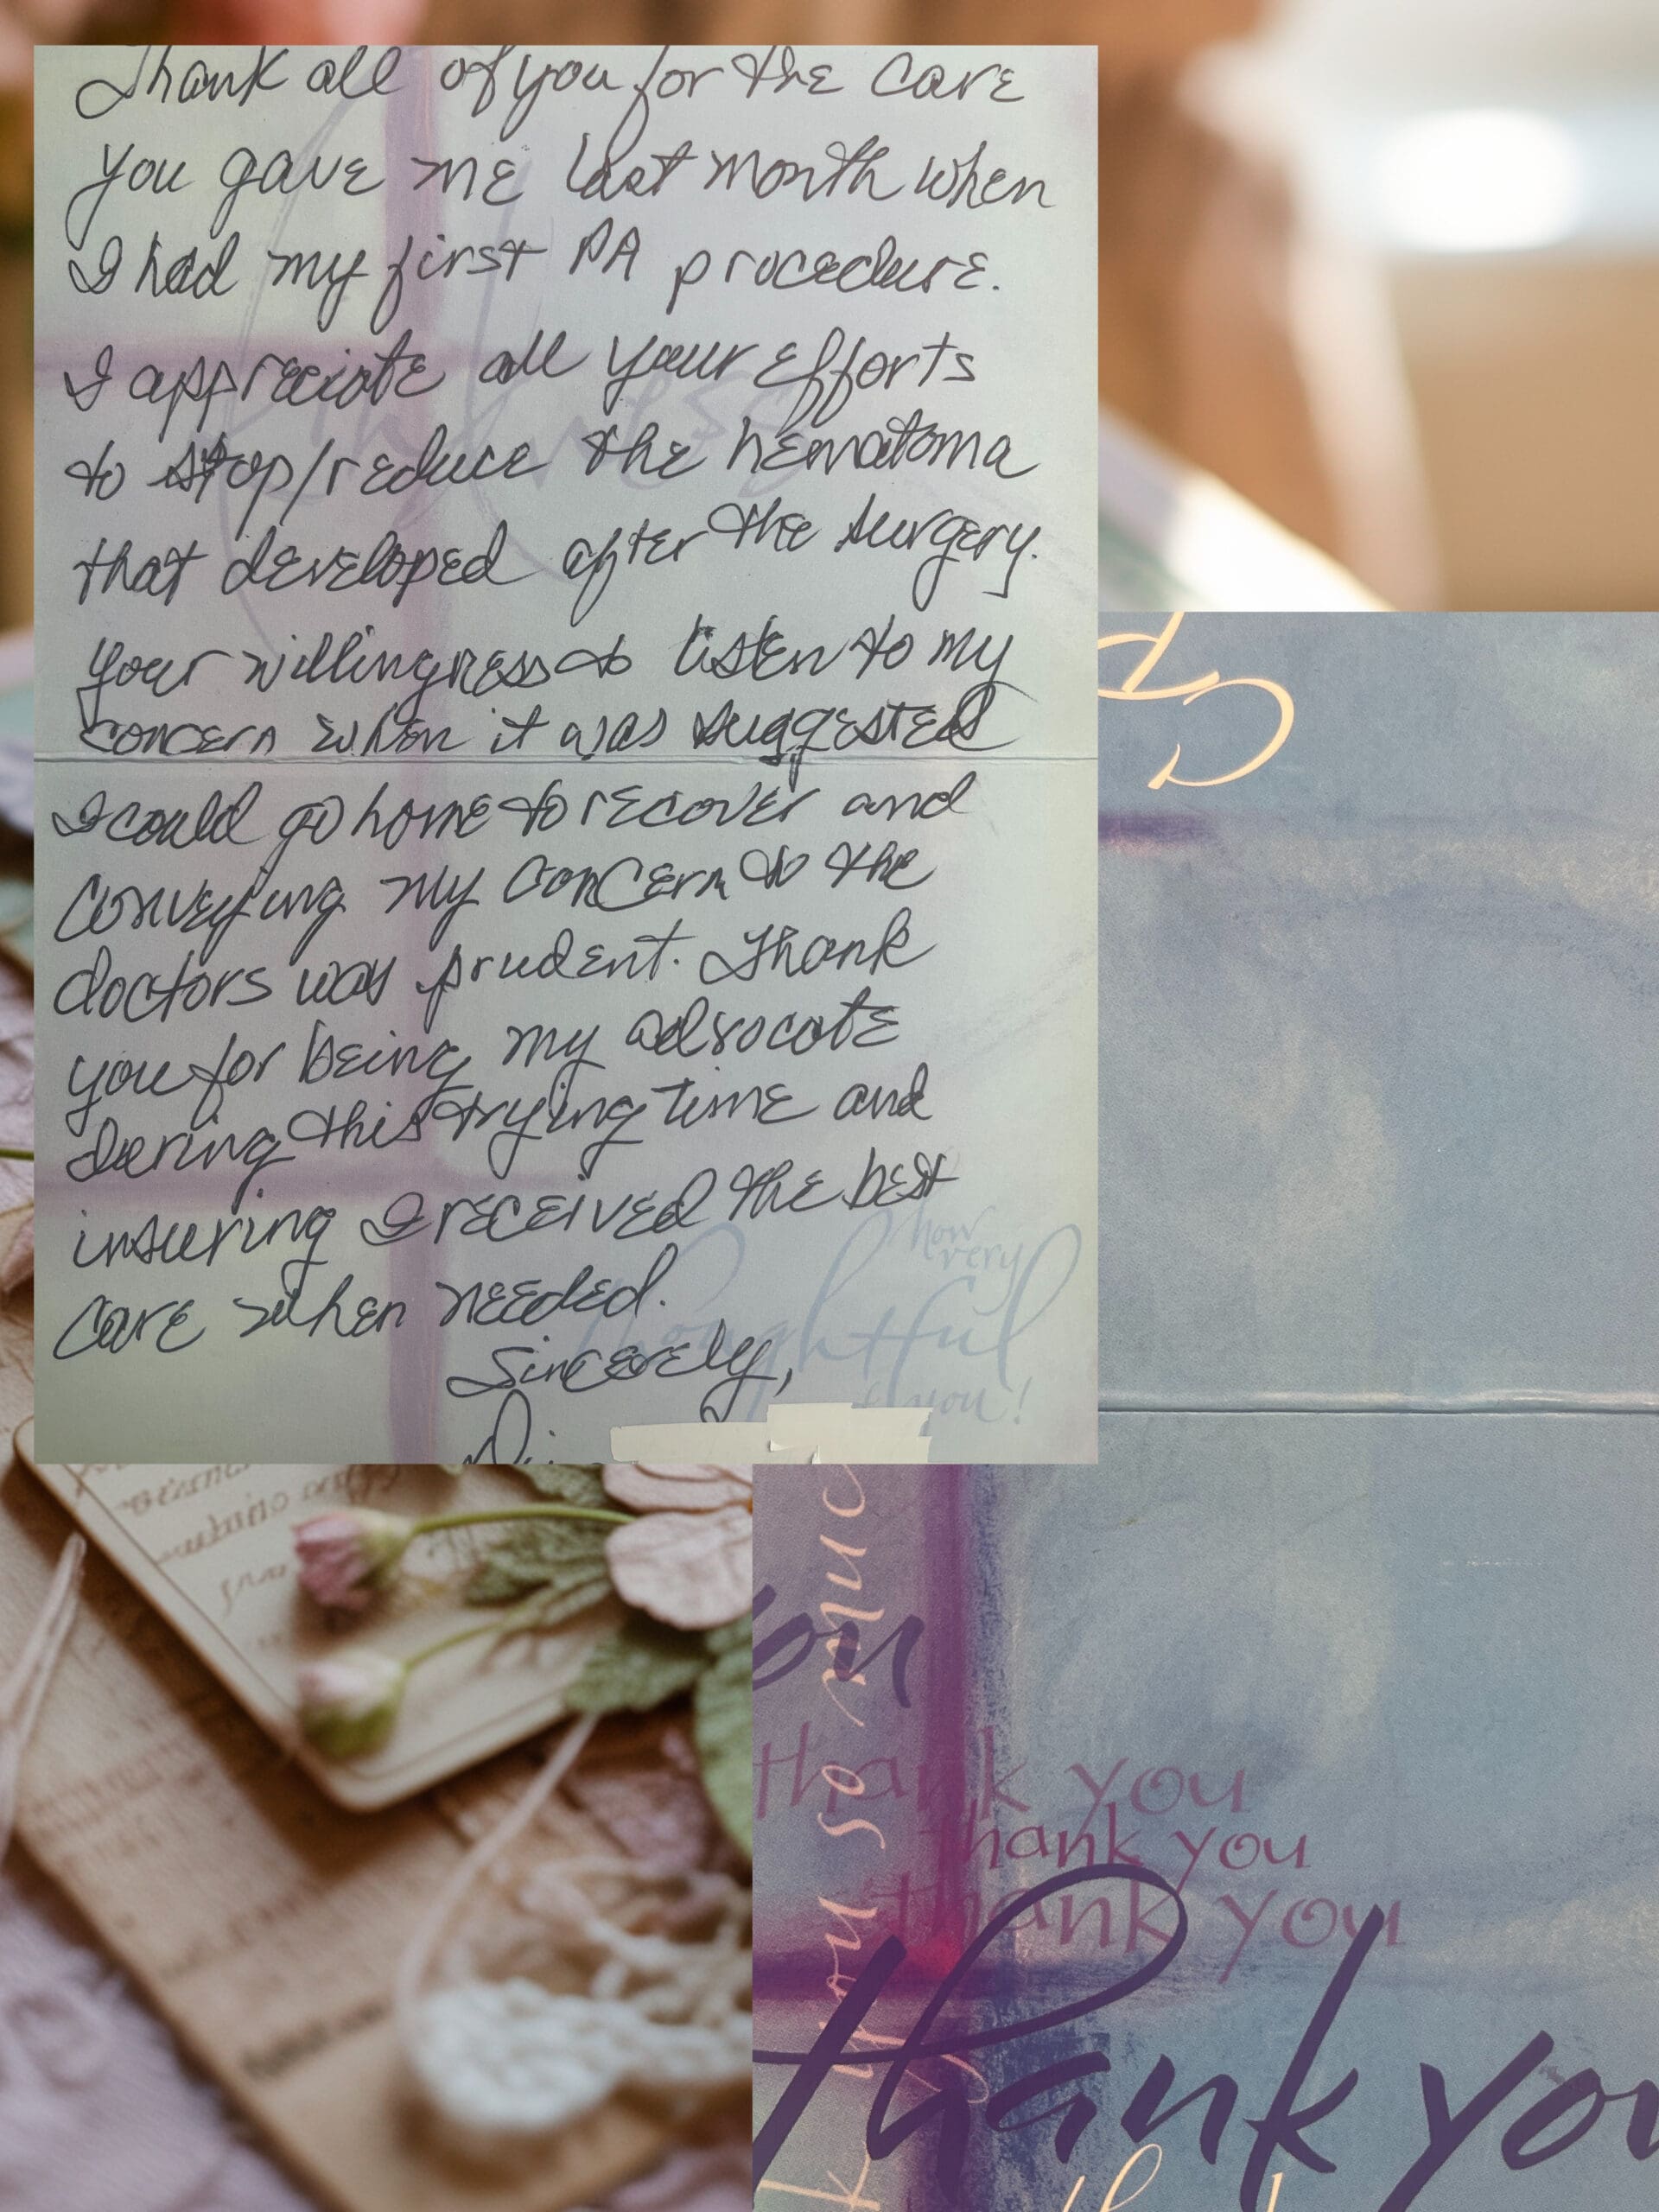 Thank all of you for the care
you gave me last month when
I had my first PA procedure.
I appreciate all your efforts
to stop/reduce the hematoma
that developed after the surgery.
your willingness to listen to my
concern when it was suggested
I could go home to recover and
conveying my concern to the
doctors was prudent. Thank
you for being my advocate
during this trying time and
insuring I received the best
care when needed.
Sincerely,
how
very
thoughtful
of you!
you so muc
you
thank you
thank you
thank you
thank you